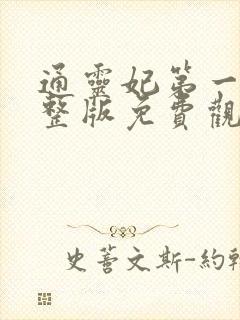 通靈妃第一
整版免費觀
史蒈文斯-約翰